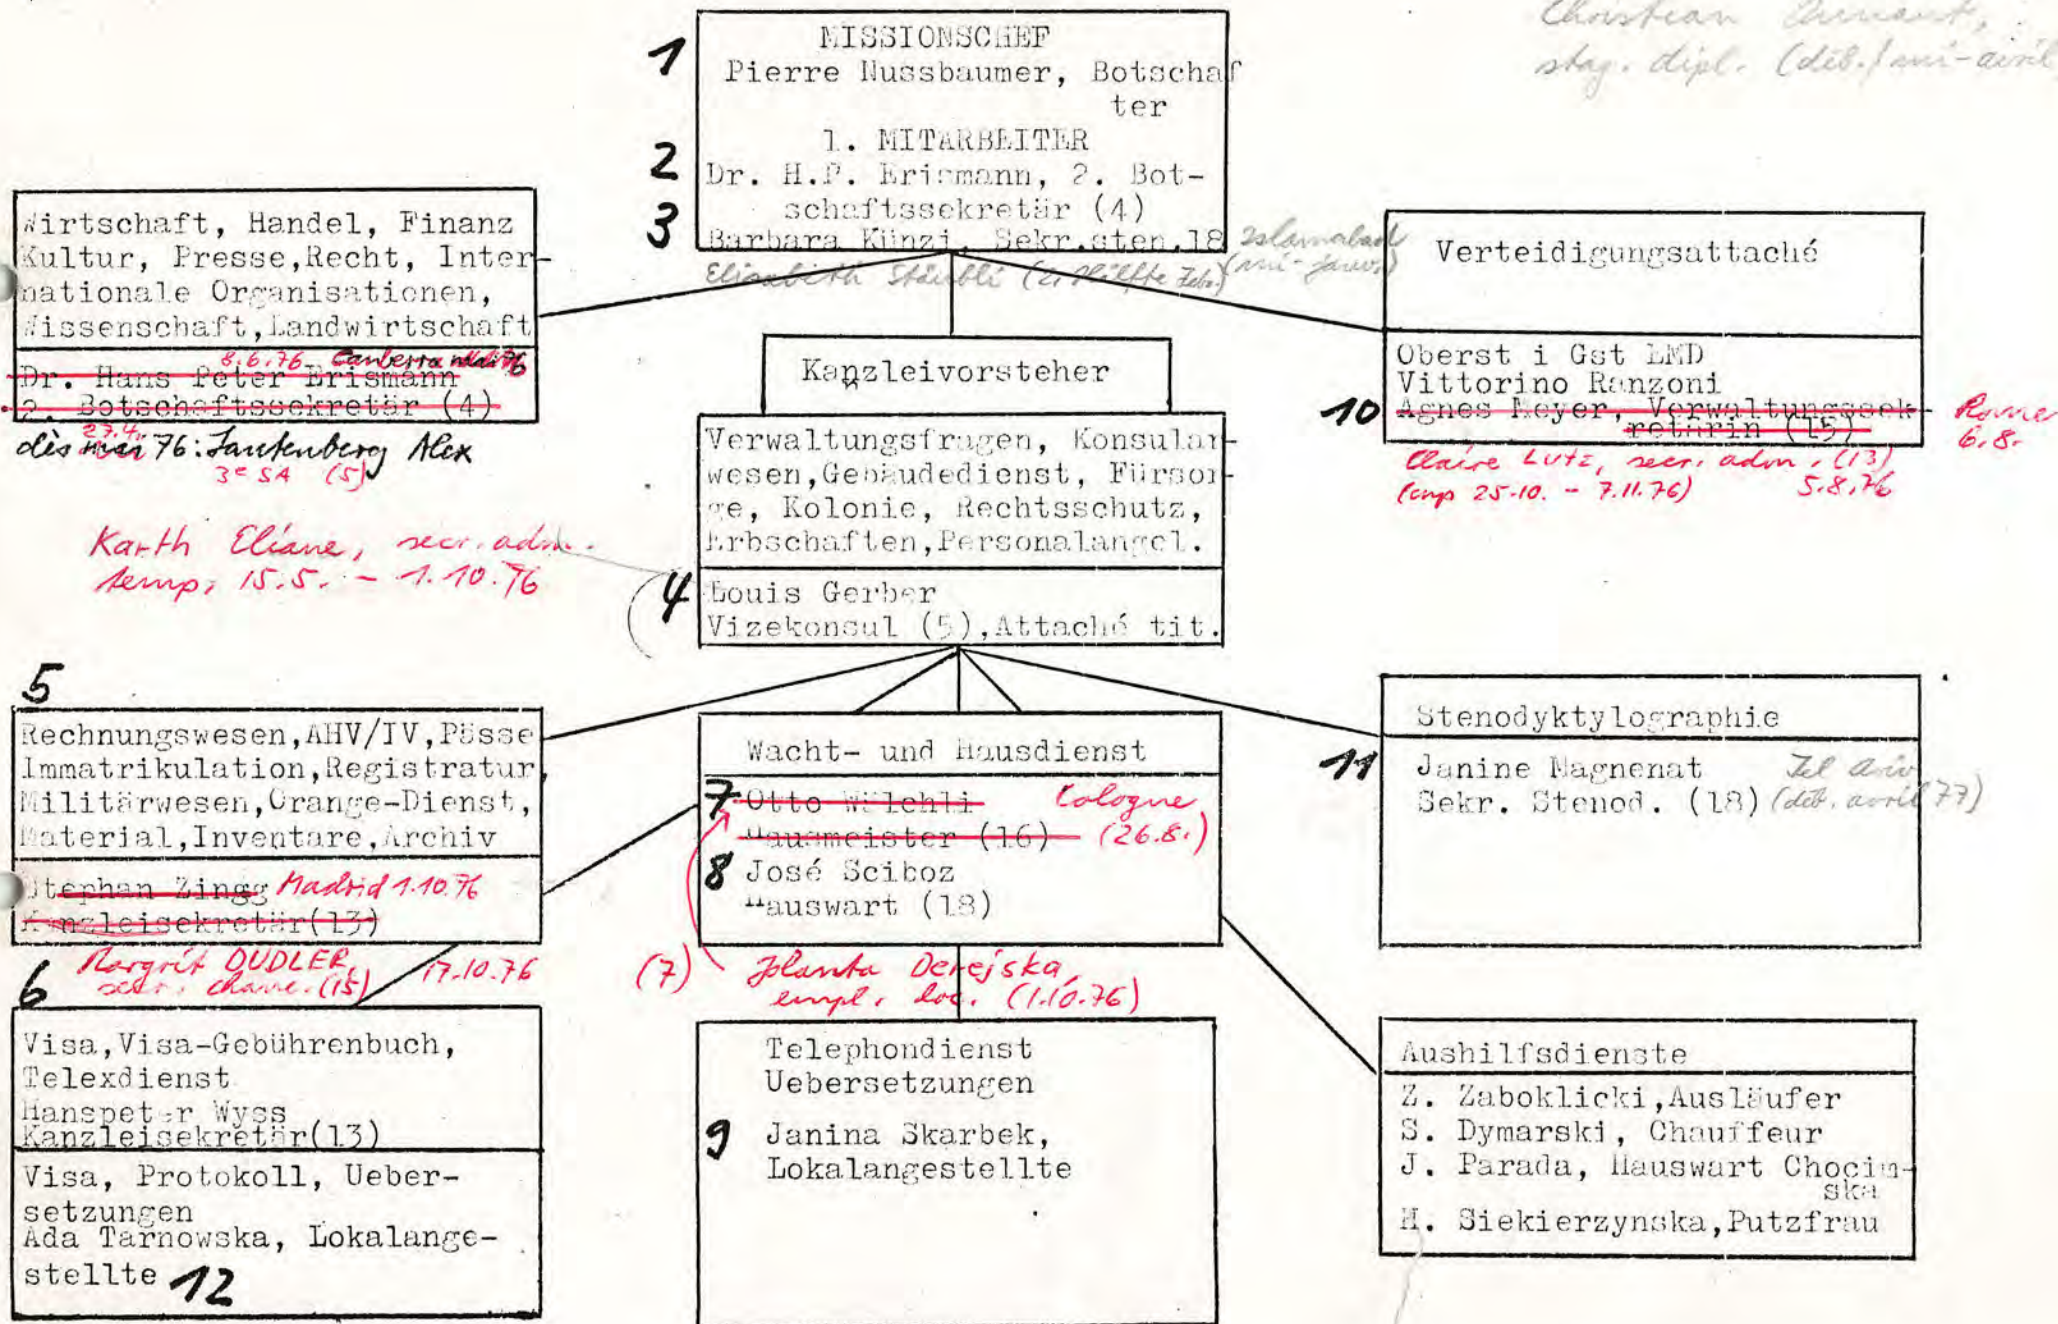 Christian
stag. dipl. (déb./mi-avril
1
MISSIONSCHEF
Pierre Nussbaumer, Botschaf
ter
1. MITARBEITER
2
Dr. H.P. Erismann, 2. Bot-
schaftssekretär (4)
3
Barbara Künzi, Sekr.sten.18
Islamabad
(mi-janv.)
Elisabeth Stäubli (2. Hälfte Febr.)
Wirtschaft, Handel, Finanz
Kultur, Presse,Recht, Inter-
nationale Organisationen,
Wissenschaft,Landwirtschaft
8.6.76 Canberra
Dr. Hans Peter Erismann
2. Botschaftssekretär (4)
27.4.
dès mai 76: Lautenberg Alex
3e SA (5)
Verteidigungsattaché
Oberst i Gst EMD
Vittorino Ranzoni
10
Agnes Meyer, Verwaltungssek-
retärin (15)
Rome
6.8.
Claire Lutz, secr. adm. (13)
(cmp 25.10. - 7.11.76) 5.8.76
Kanzleivorsteher
Verwaltungsfragen, Konsular-
wesen,Gebäudedienst, Fürsor-
ge, Kolonie, Rechtsschutz,
Erbschaften,Personalangel.
4
Louis Gerber
Vizekonsul (5),Attaché tit.
Karth Eliane, secr. adm.
temp. 15.5. - 1.10.76
5
Rechnungswesen,AHV/IV,Pässe
Immatrikulation,Registratur,
Militärwesen,Orange-Dienst,
Material,Inventare,Archiv
Stephan Zingg Madrid 1.10.76
Kanzleisekretär(13)
Margrit DUDLER,
secr. chanc. (15) 17.10.76
6
Visa,Visa-Gebührenbuch,
Telexdienst
Hanspeter Wyss
Kanzleisekretär(13)
Visa, Protokoll, Ueber-
setzungen
Ada Tarnowska, Lokalange-
stellte 12
Wacht- und Hausdienst
7
Otto Wälchli Cologne
Hausmeister (16) (26.8.)
8
José Sciboz
Hauswart (18)
(7)
Jolanta Derejska,
empl. loc. (1.10.76)
Telephondienst
Uebersetzungen
9
Janina Skarbek,
Lokalangestellte
Stenodyktylographie
11
Janine Magnenat Tel Aviv
Sekr. Stenod. (18) (déb. avril 77)
Aushilfsdienste
Z. Zaboklicki,Ausläufer
S. Dymarski, Chauffeur
J. Parada, Hauswart Chocim-
ska
M. Siekierzynska,Putzfrau